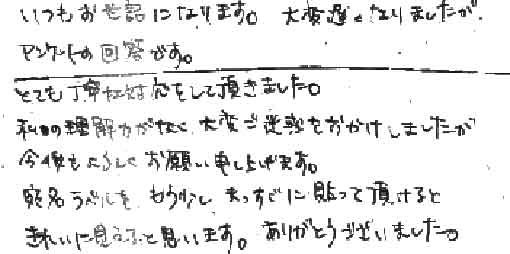 いつもお世話になります。大変遅くなりましたが、
アンケートの回答です。
とても丁寧な対応をして頂きました。
私の理解力がなく大変ご迷惑をおかけしましたが
今後もよろしくお願い申し上げます。
宛名ラベルを、もう少し、まっすぐに貼って頂けると
きれいに見えると思います。ありがとうございました。